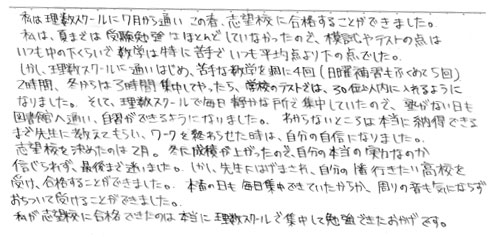 私は理数スクールに7月から通い この春、志望校に合格することができました。
私は、夏までは受験勉強はほとんどしていなかったので、模試やテストの点は
いつも中の下くらいで 数学は特に苦手で いつも平均点より下の点でした。
しかし、理数スクールに通いはじめ、苦手な数学を週に4回(日曜補習もふくめて5回)
2時間、冬からは3時間集中してやったら、学校のテストでは、30位以内に入れるように
なりました。そして、理数スクールで毎日静かな所で集中していたので、塾がない日も
図書館へ通い、自習ができるようになりました。わからないところは本当に納得できる
まで先生に教えてもらい、ワークを終わらせた時は、自分の自信になりました。
志望校を決めたのは2月。冬に成績が上がったので、自分の本当の実力なのか
信じられず、最後まで迷いました。しかし、先生にはげまされ、自分の行きたい高校を
受け、合格することができました。本番の日も毎日集中できていたからか、周りの音も気にならず
おちついて受けることができました。
私が志望校に合格できたのは本当に理数スクールで集中して勉強できたおかげです。